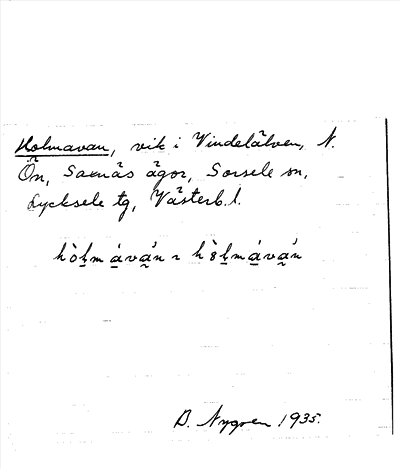 Holmavan, vik i Vindelälven, N.
Ön, Saxnäs ägor, Sorsele sn,
Lycksele tg, Västerb. l.
B. Nygren 1935.